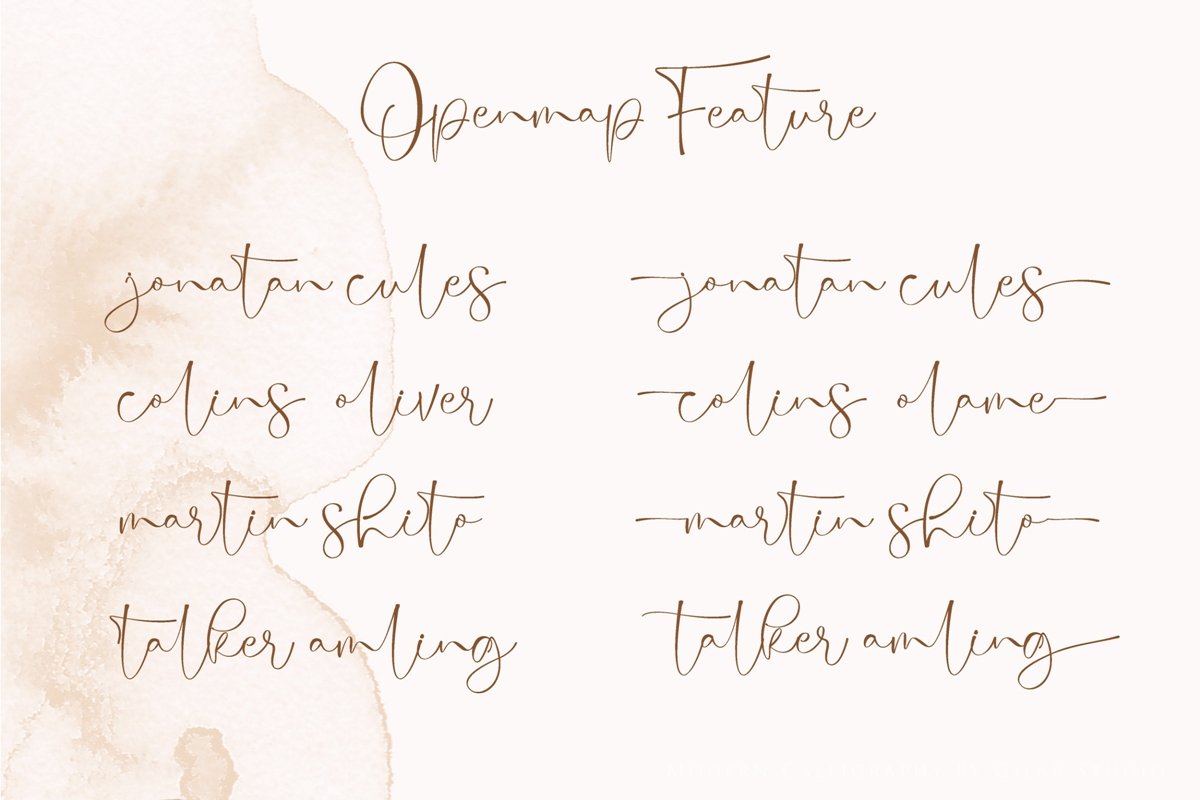 Openmap Feature
jonatan cules
colins oliver
martin shito
talker amling
jonatan cules
colins olame
martin shito
talker amling